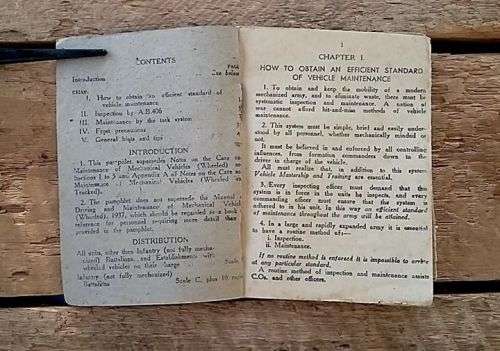 CONTENTS
PAGE
Introduction See below
CHAP.
I. How to obtain an efficient standard of
vehicle maintenance
II. Inspection by A.B.406
III. Maintenance by the task system
IV. Frost precautions
V. General hints and tips
INTRODUCTION
1. This pamphlet supersedes Notes on the Care and
Maintenance of Mechanical Vehicles (Wheeled)
Sections 1 to 5 and Appendix A of Notes on the Care and
Maintenance of Mechanical Vehicles (Wheeled
Tracked).
2. The pamphlet does not supersede the Manual of
Driving and Maintenance of Mechanical Vehicles
(Wheeled), 1937, which should be regarded as a book
reference for personnel requiring more detail than
provided in the pamphlet.
DISTRIBUTION
All units, other than Infantry (not fully mecha-
nized) Battalions, and Establishments with
wheeled vehicles on their charge
Scale C, plus 10
Infantry (not fully mechanized)
Battalions
1
CHAPTER I.
HOW TO OBTAIN AN EFFICIENT STANDARD
OF VEHICLE MAINTENANCE
1. To obtain and keep the mobility of a modern
mechanized army, and to eliminate waste, there must be
systematic inspection and maintenance. A nation at
war cannot afford hit-and-miss methods of vehicle
maintenance.
2. This system must be simple, brief and easily under-
stood by all personnel, whether mechanically minded or
not.
It must be believed in and enforced by all controlling
influences, from formation commanders down to the
driver in charge of the vehicle.
All must realize that, in addition to this system
Vehicle Mastership and Training are essential.
3. Every inspecting officer must demand that this
system is in force in the units he inspects, and every
commanding officer must ensure that the system is
adopted in his unit. In this way an efficient standard
of maintenance throughout the army will be attained.
4. In a large and rapidly expanded army it is essential
to have a routine method of:—
i. Inspection.
ii. Maintenance.
If no routine method is enforced it is impossible to arrive
at any particular standard.
A routine method of inspection and maintenance assists
C.Os. and other officers.